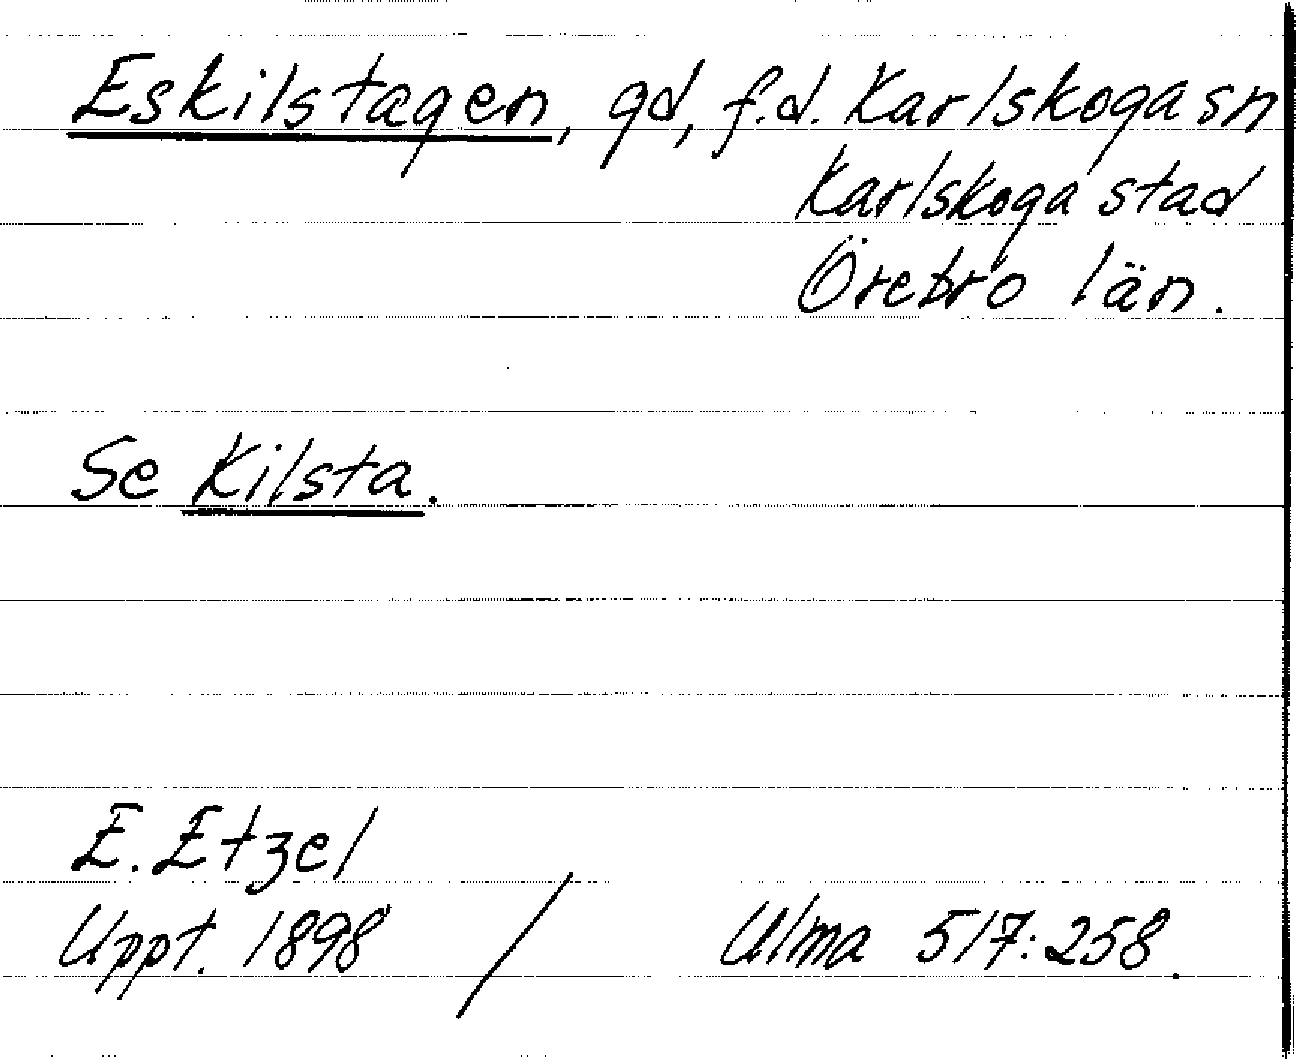 Eskilstagen, gd, f.d. Karlskoga sn
Karlskoga stad
Örebro län.
Se Kilsta.
E. Etzel
Uppt. 1898 / Ulma 517:258.